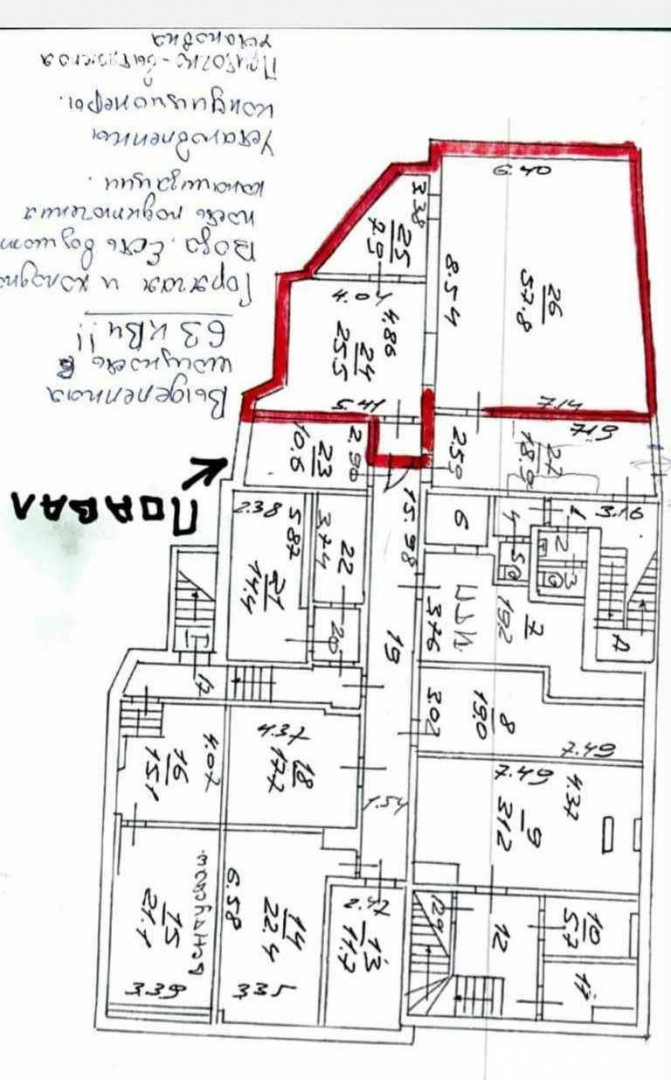 Выделенная
мощность в
63 кВч!!
Горячая и холодна
Вода. Есть возмож
ность подключения
канализации.
Установленны
кондиционеры.
Приточно-вытяжная
установка
ПОДВАЛ
6.40
3.38
25
7.9
8.54
26
57.8
4.04
4.86
24
25.5
7.17
6.17
2.90
23
10.6
2.59
27
18.9
3.16
2.38
5.87
3.74
22
15.98
6
4
1
2
3
5
21
14.4
20
19
3.76
19.2
7
17
3.02
8
19.0
7.49
4.07
16
15.1
4.37
18
17.7
1.54
7.49
4.37
9
31.2
6.58
15
21.1
14
22.4
13
11.7
12
10
5.7
11
3.39
3.35